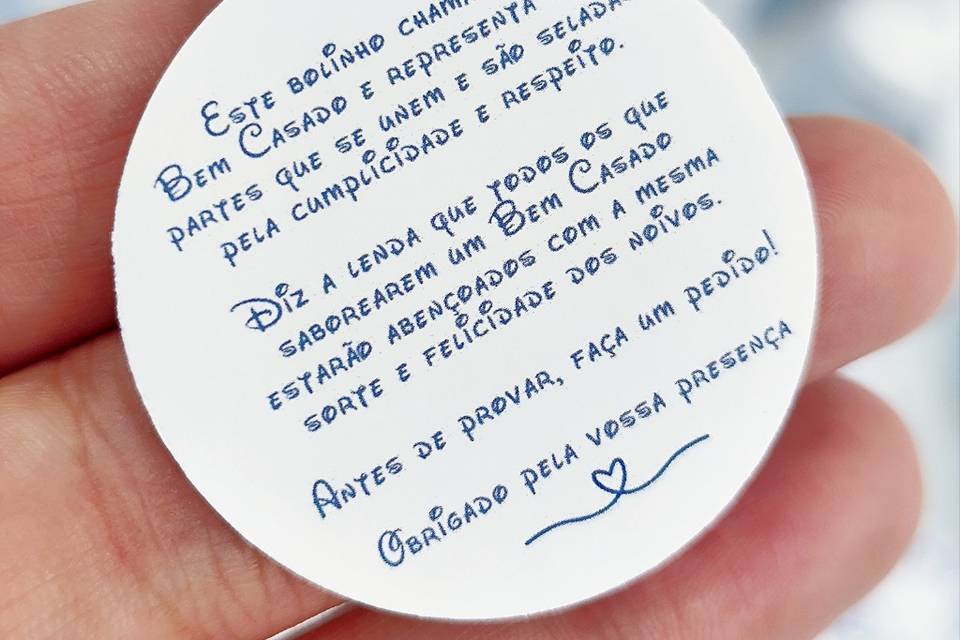 Este bolinho
Bem Casado e representa
partes que se unem e são
pela cumplicidade e respeito.
Diz a lenda que todos os que
saborearem um Bem Casado
estarão abençoados com a mesma
sorte e felicidade dos noivos.
Antes de provar, faça um pedido!
Obrigado pela vossa presença